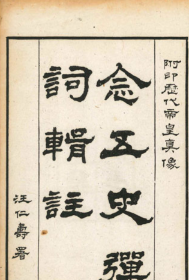 附印歷代帝皇真像
念五史彈
詞輯註
汪仁壽署